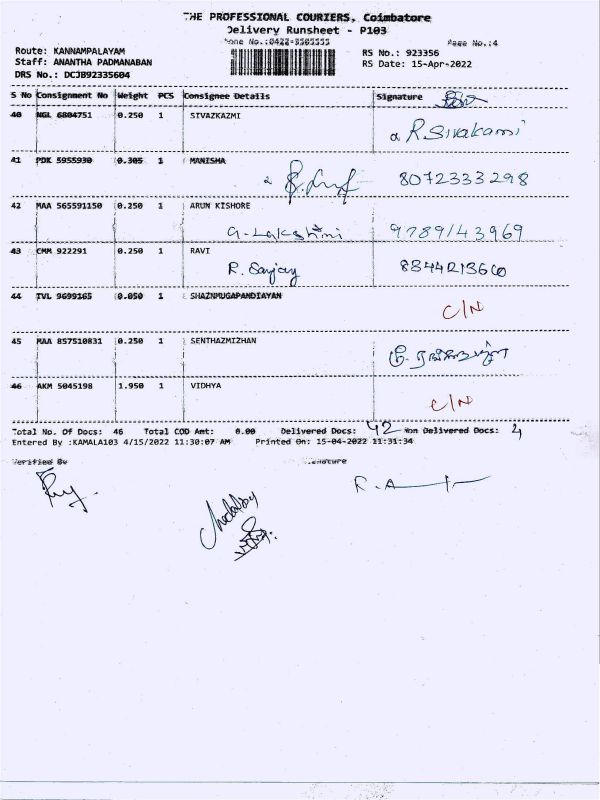 THE PROFESSIONAL COURIERS, Coimbatore
Delivery Runsheet - P103
Phone No.:0422-3505555 Page No.:4
Route: KANNAMPALAYAM RS No.: 923356
Staff: ANANTHA PADMANABAN RS Date: 15-Apr-2022
DRS No.: DCJB92335604
S No Consignment No Weight PCS Consignee Details Signature
40 NGL 6804751 0.250 1 SIVAZKAZMI
R.Sivakami
41 PDK 5955930 0.305 1 MANISHA
8072333298
42 MAA 565591150 0.250 1 ARUN KISHORE
G. Lakshmi 9789143969
43 CMM 922291 0.250 1 RAVI
R. Sanjay 8344213600
44 TVL 9699165 0.050 1 SHAZNMUGAPANDIAYAN
C/N
45 MAA 857510831 0.250 1 SENTHAZMIZHAN
46 AKM 5045198 1.950 1 VIDHYA
C/N
Total No. Of Docs: 46 Total COD Amt: 0.00 Delivered Docs: 42 Non Delivered Docs: 4
Entered By :KAMALA103 4/15/2022 11:30:07 AM Printed On: 15-04-2022 11:31:34
Verified By Signature